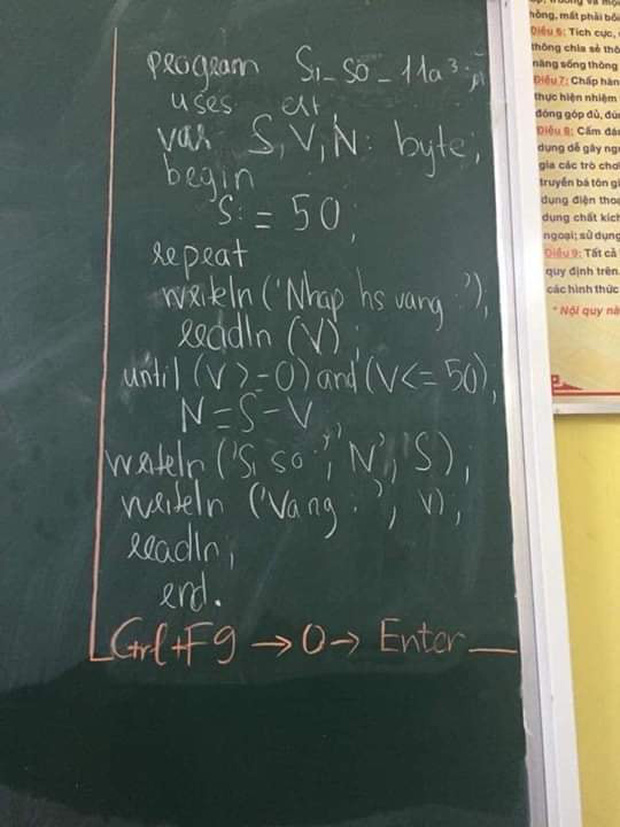 program Si_so_11a3;
uses crt;
var S, V, N: byte;
begin
S: = 50;
repeat
writeln ('Nhap hs vang :');
readln (V);
until (V >=0) and (V<= 50);
N = S - V
writeln ('Si so :', N, '/', S);
writeln ('Vang :', V);
readln;
end.
Ctrl+F9 → 0 → Enter
hòng, mất phải bồi
Điều 6: Tích cực,
thông chia sẻ
năng sống thông
Điều 7: Chấp hàn
thực hiện nhiệm
đóng góp đủ, đún
Điều 8: Cấm
dụng dễ gây
gia các trò chơi
truyền bá tôn gi
dụng điện thoạ
dụng chất kích
ngoại; sử dụng
Điều 9: Tất cả
quy định trên.
các hình thức
* Nội quy nà